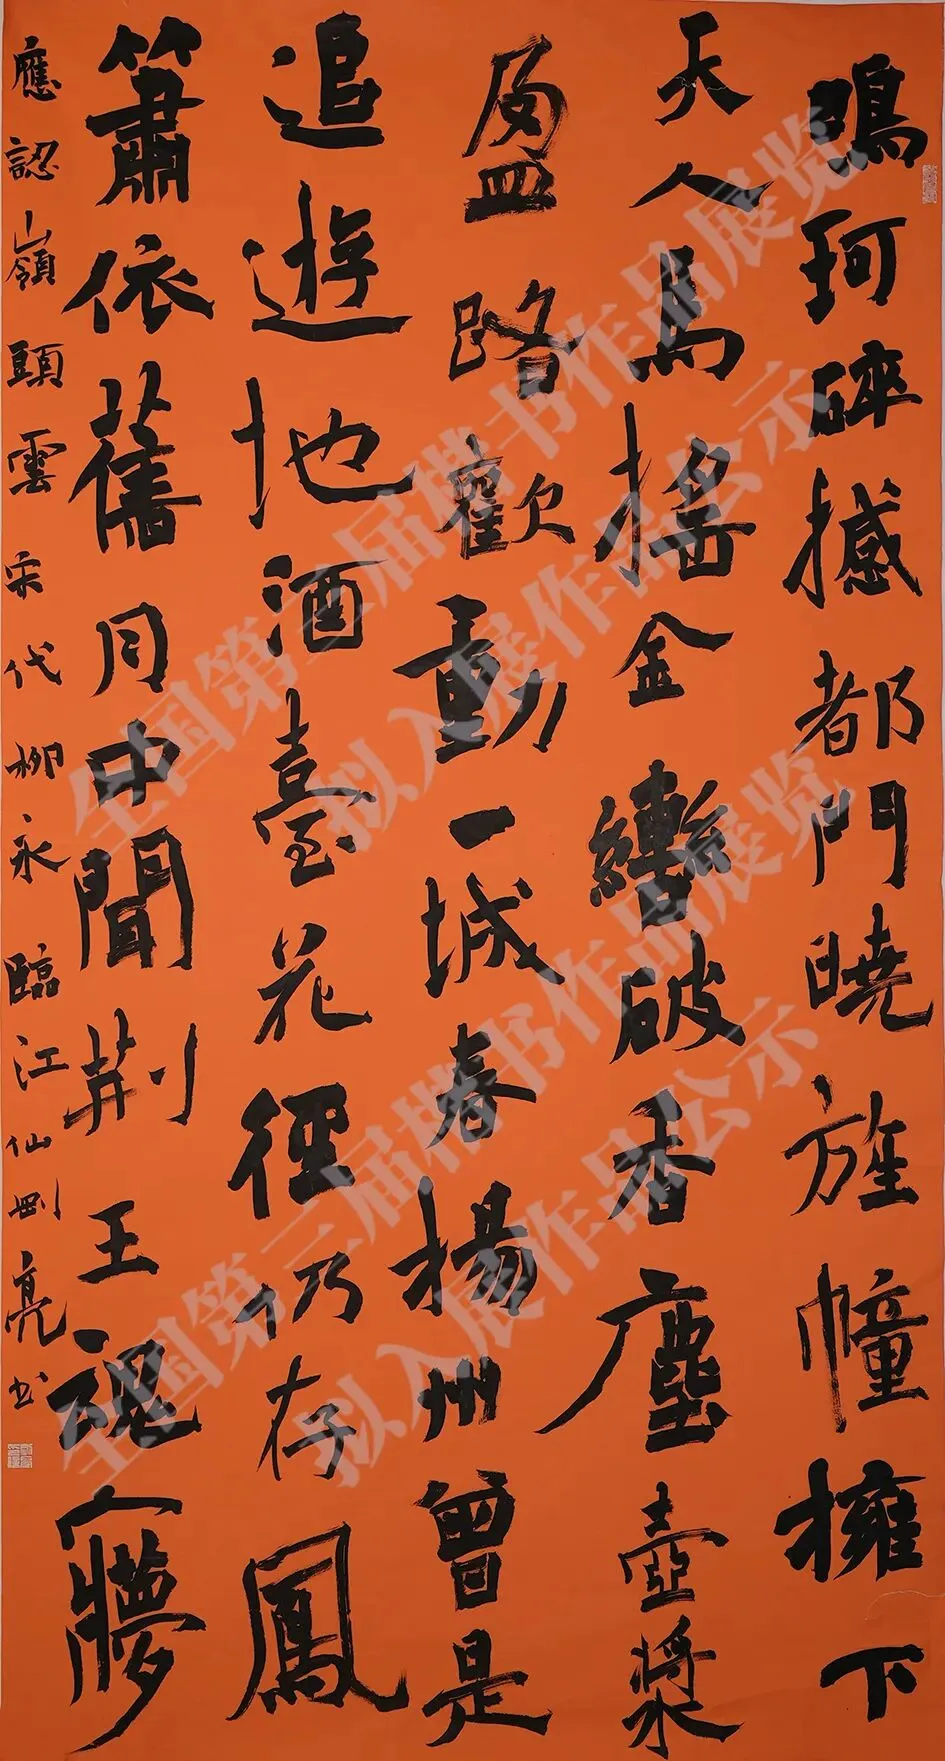 鳴珂碎撼都門曉旌幢擁下
天人馬搖金轡破香塵壺漿
盈路歡動一城春揚州曾是
追遊地酒臺花徑仍存鳳
簫依舊月中聞荆王魂夢
應認嶺頭雲宋代柳永臨江仙劉亮书
全国第三届楷书作品展览
拟入展作品公示
全国第三届楷书作品展览
拟入展作品公示